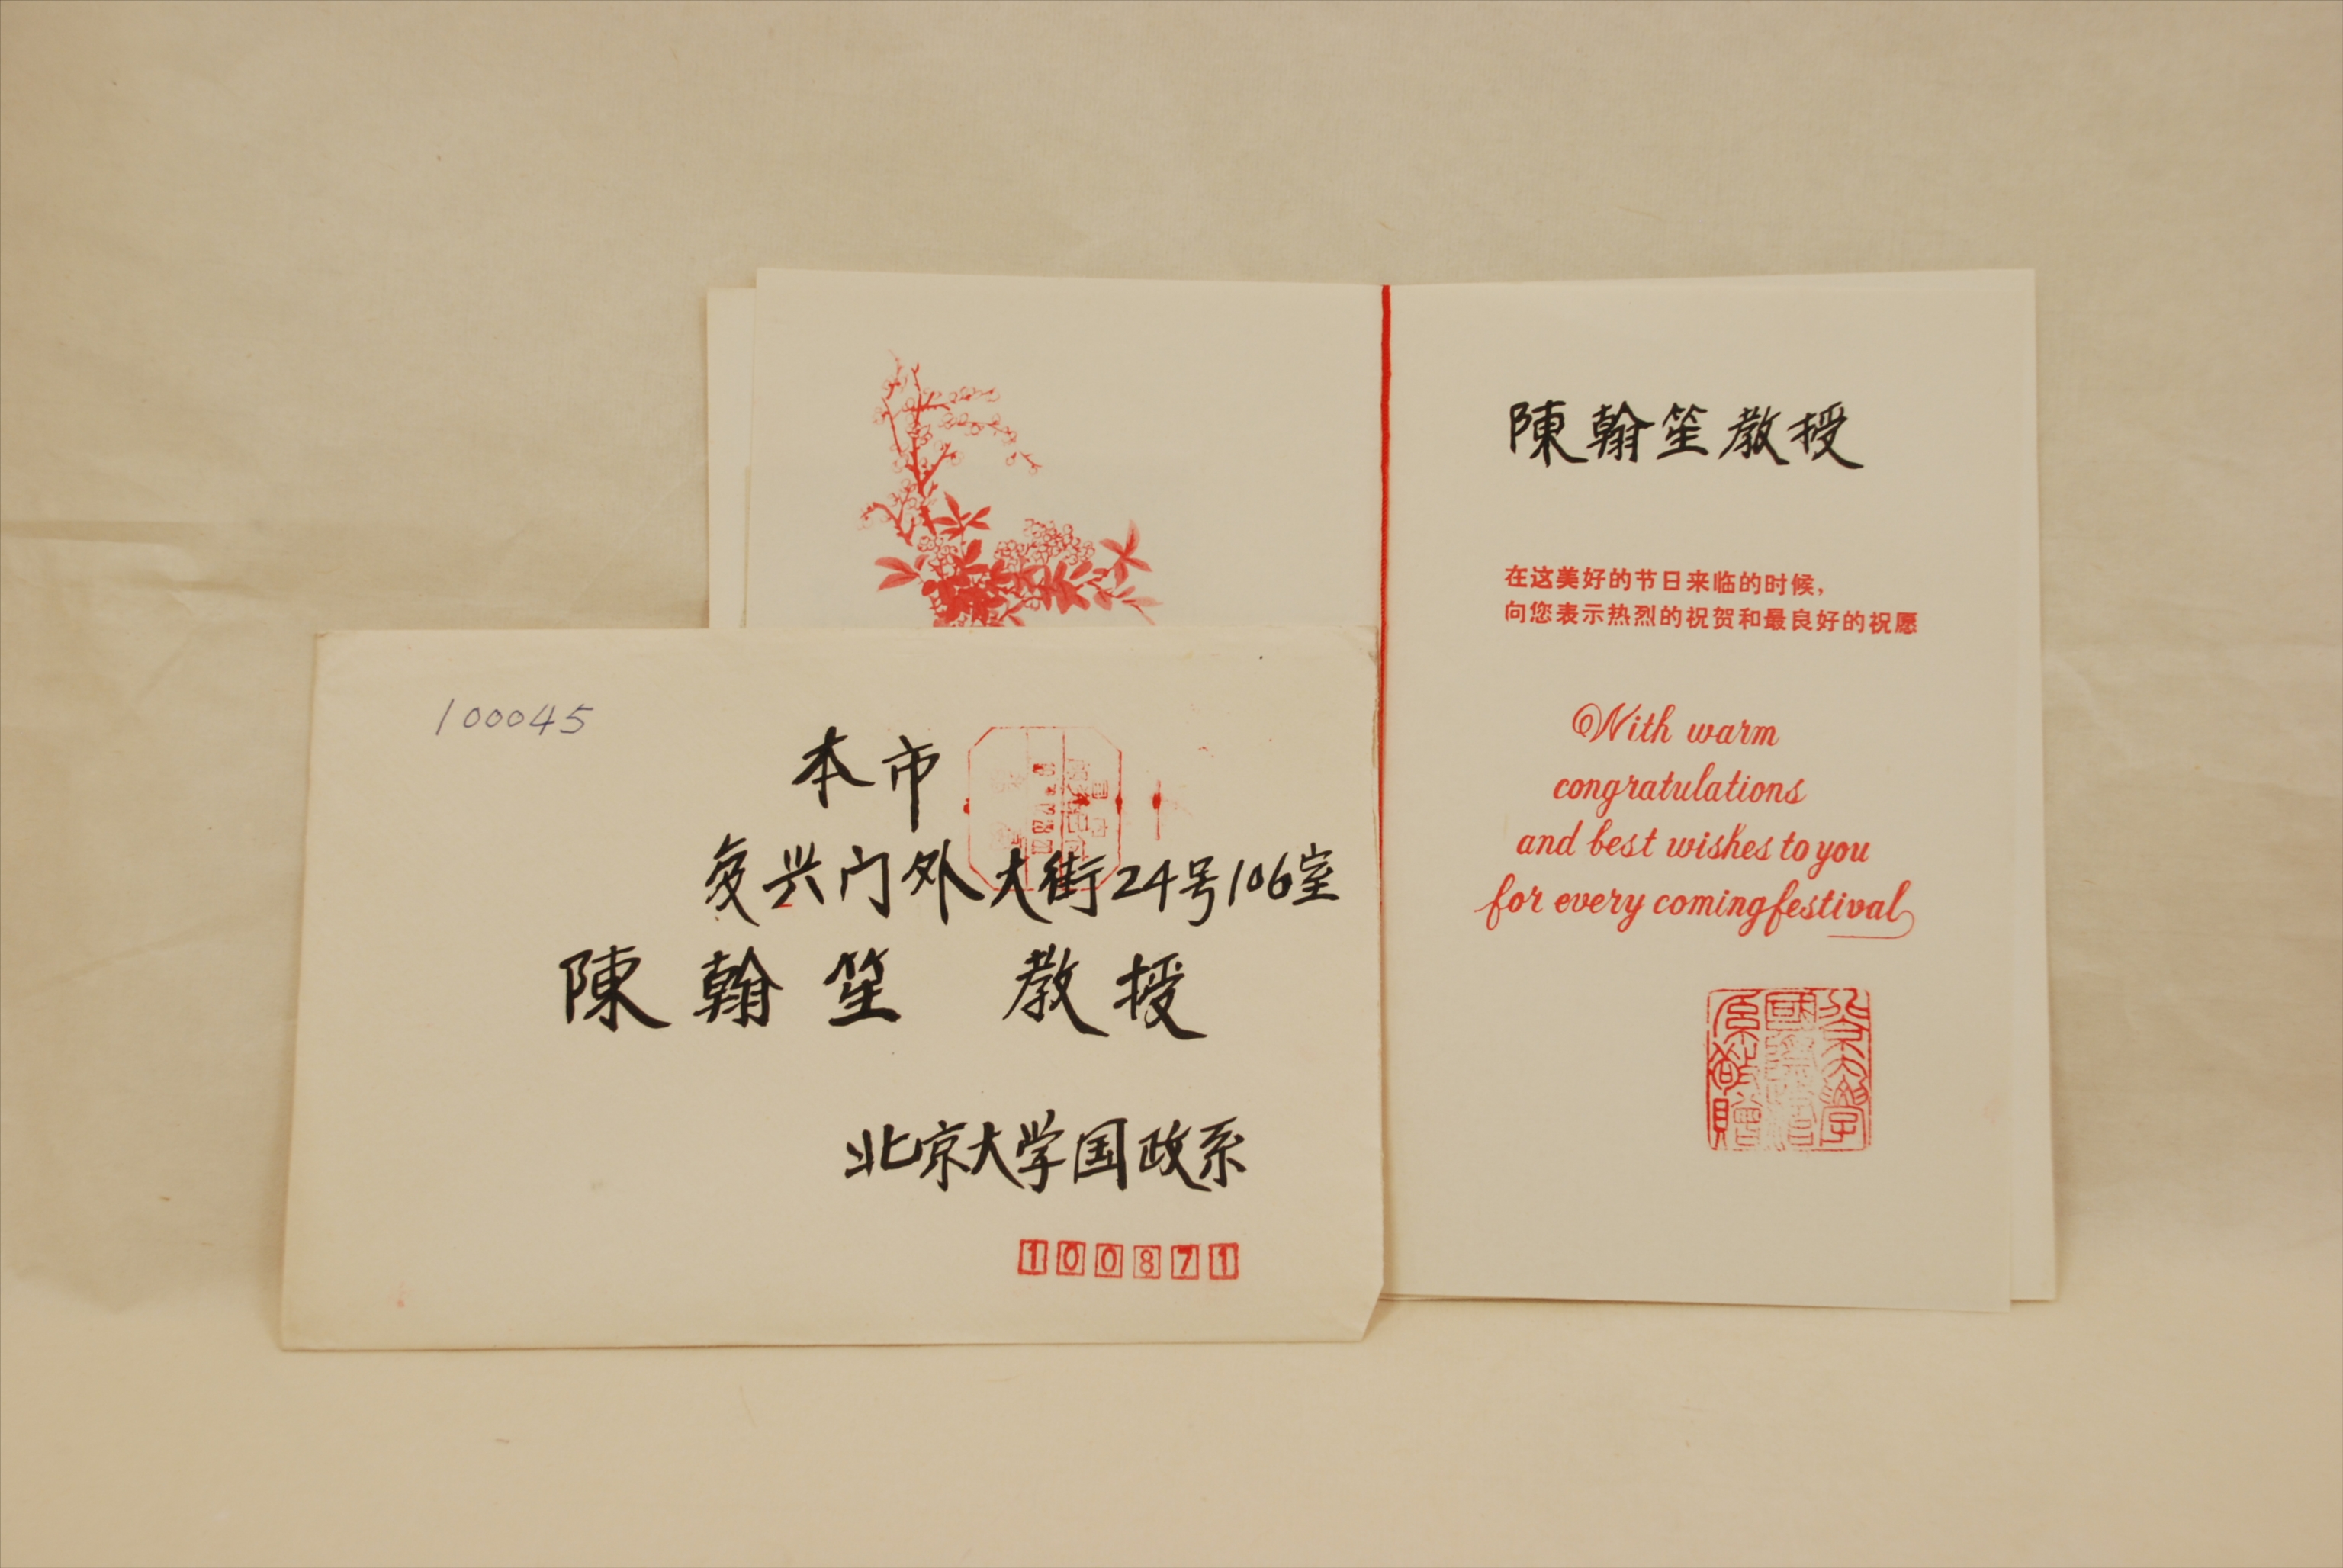 100045
本市
复兴门外大街24号106室
陳翰笙 教授
北京大学国政系
100871
陳翰笙教授
在这美好的节日来临的时候,
向您表示热烈的祝贺和最良好的祝愿
With warm
congratulations
and best wishes to you
for every coming festival